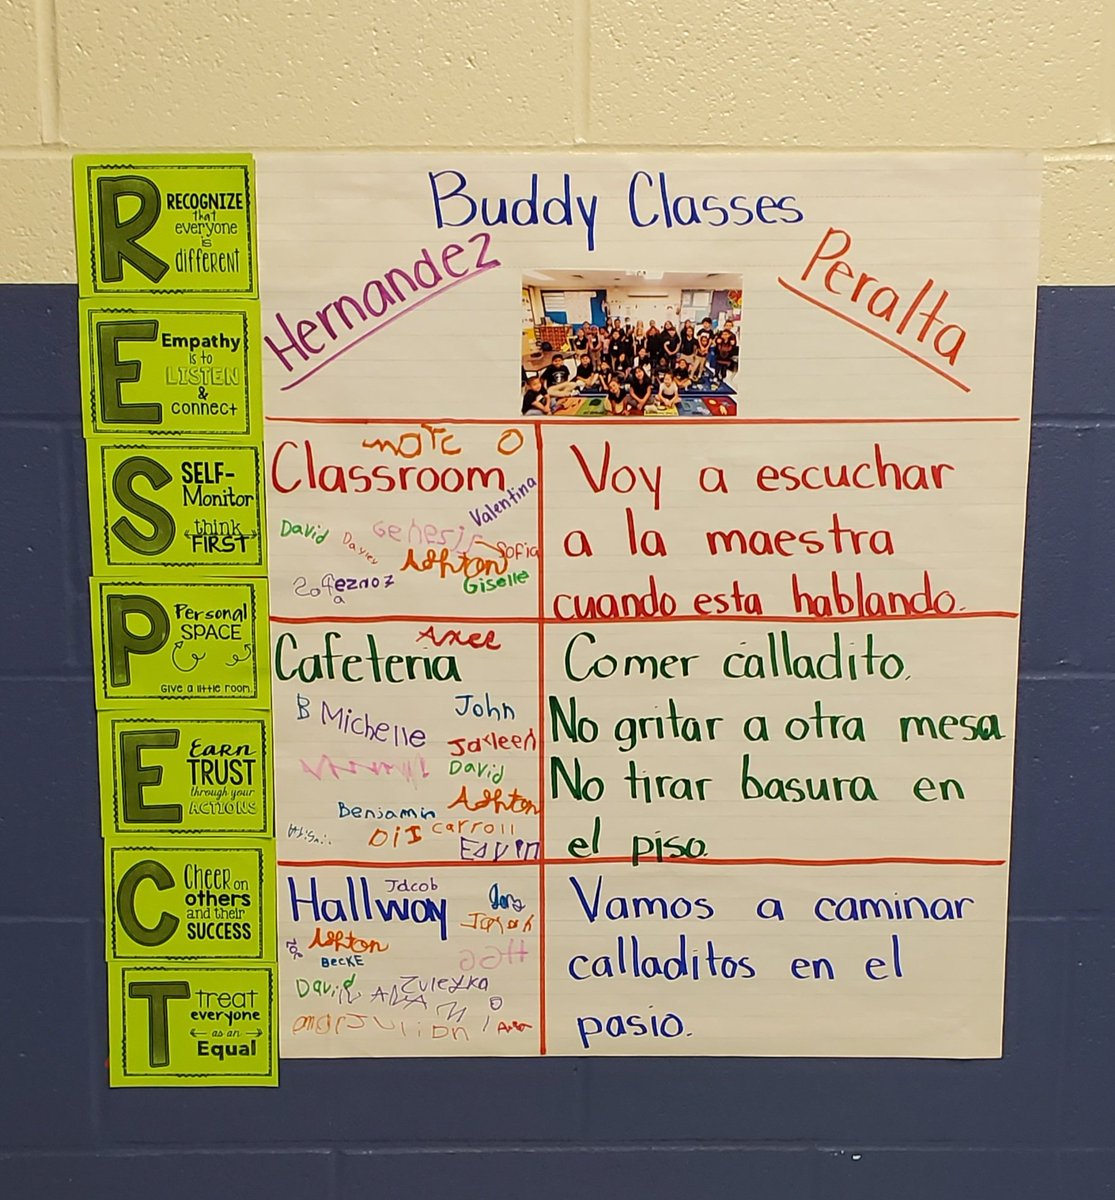 R
RECOGNIZE
that
everyone
is
different
E
Empathy
is to
LISTEN
&
connect
S
SELF-
Monitor
think
FIRST
P
Personal
SPACE
Give a little room.
E
EARN
TRUST
through your
ACTIONS
C
Cheer on
others
and their
SUCCESS
T
treat
everyone
as an
Equal
Buddy Classes
Hernandez
Peralta
Classroom
Valentina
David
Genesis
Sofia
Ashton
Giselle
Voy a escuchar
a la maestra
cuando esta hablando.
Cafeteria
Axel
B Michelle
John
Jayleen
David
Benjamin
Ashton
Carroll
Edvin
Comer calladito.
No gritar a otra mesa
No tirar basura en
el piso.
Hallway
Jacob
Ashton
BECKE
David
Zuleyka
Julian
Vamos a caminar
calladitos en el
pasio.